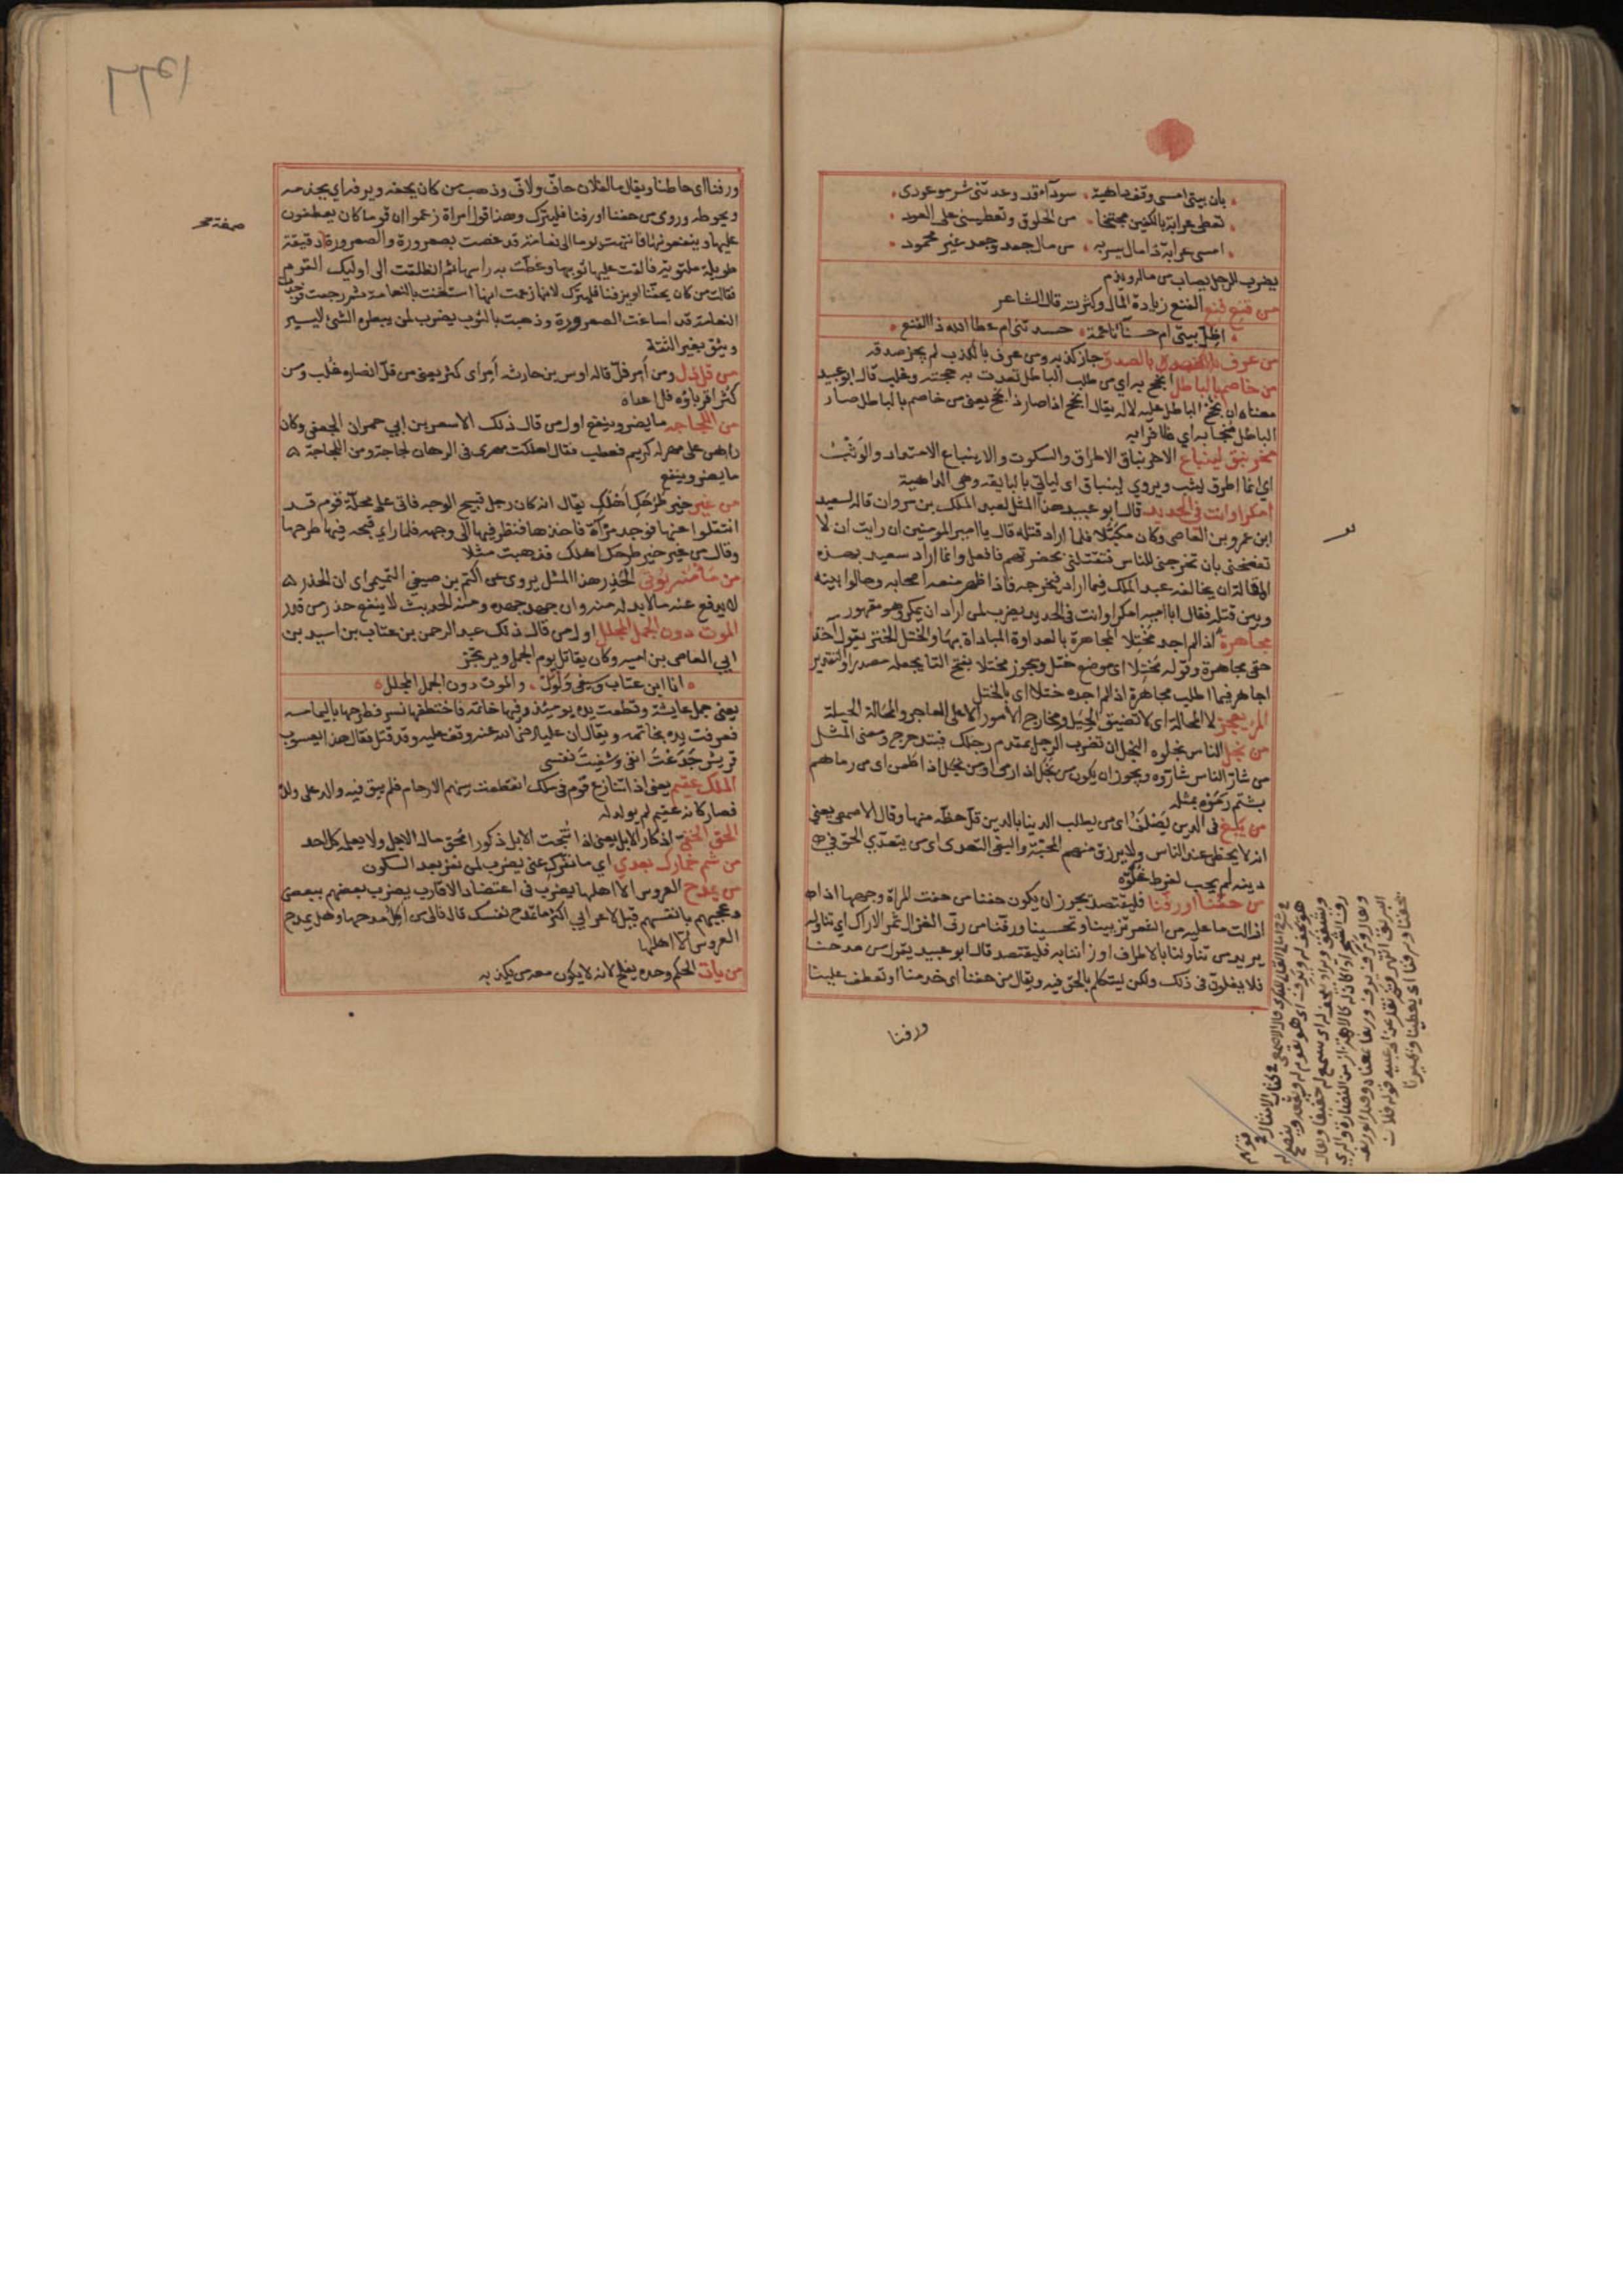 بان بيتي امسى وقف داهية سوداء قد وعدتني شر موعودي
تعطي عرابة بالكفين مجتنحا من الخلوق وتعطيني على العود
امسى عرابة ذا مال يسر به من مال جعد وجعد غير محمود
يضرب للرجل يصاب من ماله ويذم
من قنع فنع الفنع زيادة المال وكثرته قال الشاعر
اظل بيتي ام حسنآ ناعمة حسدتني ام عطا الله ذا الفنع
من عرف بالصدق جاز كذبه ومن عرف بالكذب لم يجز صدقه
من خاصم بالباطل انجح به اي من طلب الباطل قعدت به حجته وغلب قال ابو عبيد
معناه ان نجح الباطل عليه لا له يقال انجح اذا صار ذا نجح يعني من خاصم بالباطل صار
الباطل منجحا به اي ظافرا به
مخرنبق لينباع الاخرنباق الاطراق والسكوت والانبياع الامتداد والوثب
اي انما اطرق ليثب ويروى لينباق اي لياتي بالبايقة وهي الداهية
امكرا وانت في الحديد قال ابو عبيد هذا المثل لعبد الملك بن مروان قاله لسعيد
ابن عمرو بن العاص وكان مكبلا فلما اراد قتله قال يا امير المومنين ان رايت ان لا
تفضحني بان تخرجني للناس فتقتلني بحضرتهم فافعل وانما اراد سعيد بهذه
المقالة ان يخالفه عبد الملك فيما اراد فيخرجه فاذا ظهر منعه اصحابه وحالوا بينه
وبين قتله فقال ابا امية امكرا وانت في الحديد يضرب لمن اراد ان يمكر وهو مقهور
مجاهرة اذا لم اجد مختلا المجاهرة بالعداوة المباداة بها والختل الختر يقول اخذ
حقي مجاهرة وقوله مختلا اي موضع ختل ويجوز مختلا بفتح التا يجعله مصدرا والتقدير
اجاهر فيما اطلب مجاهرة اذا لم اجده ختلا اي بالختل
المر يعجز لا المحالة اي لا تضيق الحيل ومخارج الامور الا على العاجر والمحالة الحيلة
من نجل الناس نجلوه النجل ان تضرب الرجل بمقدم رجلك فيتدحرج ومعنى المثل
من شار الناس شاروه ويجوز ان يكون من نجل اذا رمى او من نجل اذا طعن اي من رماهم
بشتم رموه بمثله
من يبغ في الدين يصلف اي من يطلب الدنيا بالدين قل حظه منها وقال الاصمعي يعني
انه لا يحظى عند الناس ولا يرزق منهم المحبة والبغي التعدي اي من يتعدي الحق في
دينه لم يحب لفرط غلوه
من حفنا او رفنا فليقتصد يجوز ان يكون حفنا من حفت المراة وجهها اذا
ازالت ما عليه من الشعر تزيينا وتحسينا ورفنا من رف الغزال ثمر الاراك اي تناوله
يريد من تناولنا بالاطراف او زاننا به فليقتصد قال ابو عبيد يقول من مدحنا
فلا يغلون في ذلك ولكن ليتكلم بالحق فيه ويقال من حفنا اي خدمنا او تعطف علينا
ورفنا
ورفنا اي حاطنا ويقال ما لفلان حاف ولا راف وذهب من كان يحفه ويرفه اي يخدمه
ويحوطه وروي من حفنا او رفنا فليترك وهذا قول امراة زعموا ان قوما كان يعطفون
عليها وينفعونها فانتهت يوما الى نعامة قد غصت بصعرورة والصعرورة دقيقة
صمغة صح
طويلة ملتوية فالقت عليها ثوبها وغطت به راسها ثم انطلقت الى اوليك القوم
فقالت من كان يحفنا او يرفنا فليترك لانها زعمت انها استغنت بالنعامة ثم رجعت فوجدت
النعامة قد اساغت الصعرورة وذهبت بالثوب يضرب لمن يبطره الشئ اليسير
ويثق بغير الثقة
من قل ذل ومن امر فل قاله اوس بن حارثه امر اي كثر يعني من قل انصاره غلب ومن
كثر اقرباؤه فل اعداه
من اللجاجه ما يضر وينفع اول من قال ذلك الاسعر بن ابي حمران الجعفي وكان
راهن على مهر له كريم فعطب فقال اهلكت مهري في الرهان لجاجة ومن اللجاجة
ما يضر وينفع
من غير خير طرحك اهلك يقال انه كان رجل قبيح الوجه فاتى على محلة قوم قد
انتقلوا عنها فوجد مرآة فاخذها فنظر فيها الى وجهه فلما راى قبحه فيها طرحها
وقال من غير خير طرحك اهلك فذهبت مثلا
من مأمنه يؤتى الحذر هذا المثل يروى عن اكثم بن صيفي التميمي اي ان الحذر
لا يدفع عنه ما لا بد له منه وان جهد جهده ومنه الحديث لا ينفع حذر من قدر
الموت دون الجمل المجلل اول من قال ذلك عبد الرحمن بن عتاب بن اسيد بن
ابي العاص بن اميه وكان يقاتل يوم الجمل ويرتجز
انا ابن عتاب وسيفي ولول والموت دون الجمل المجلل
يعني جمل عايشة وقطعت يده يوميذ وفيها خاتمه فاختطفها نسر فطرحها باليمامه
فعرفت يده بخاتمه ويقال ان عليا رضي الله عنه وقف عليه وقد قتل فقال هذا يعسوب
قريش جدعت انفي وشفيت نفسي
الملك عقيم يعني اذا تنازع قوم في ملك انقطعت بينهم الارحام فلم يبق فيه والد على ولده
فصار كانه عقيم لم يولد له
المحق الخفي اذكار الابل يعني اذا نتجت الابل ذكورا محق مال الرجل ولا يعلمه كل احد
من شم خمارك بعدي اي ما نفرك عني يضرب لمن نفر بعد السكون
من يمدح العروس الا اهلها يضرب في اعتضاد الاقارب يضرب بعضهم ببعض
وعجبهم بانفسهم قيل لاعرابي ما اكثر ما تمدح نفسك قال فالى من اكل مدحها وهل يمدح
العروس الا اهلها
من يات الحكم وحده يفلح لانه لا يكون معه من يكذبه